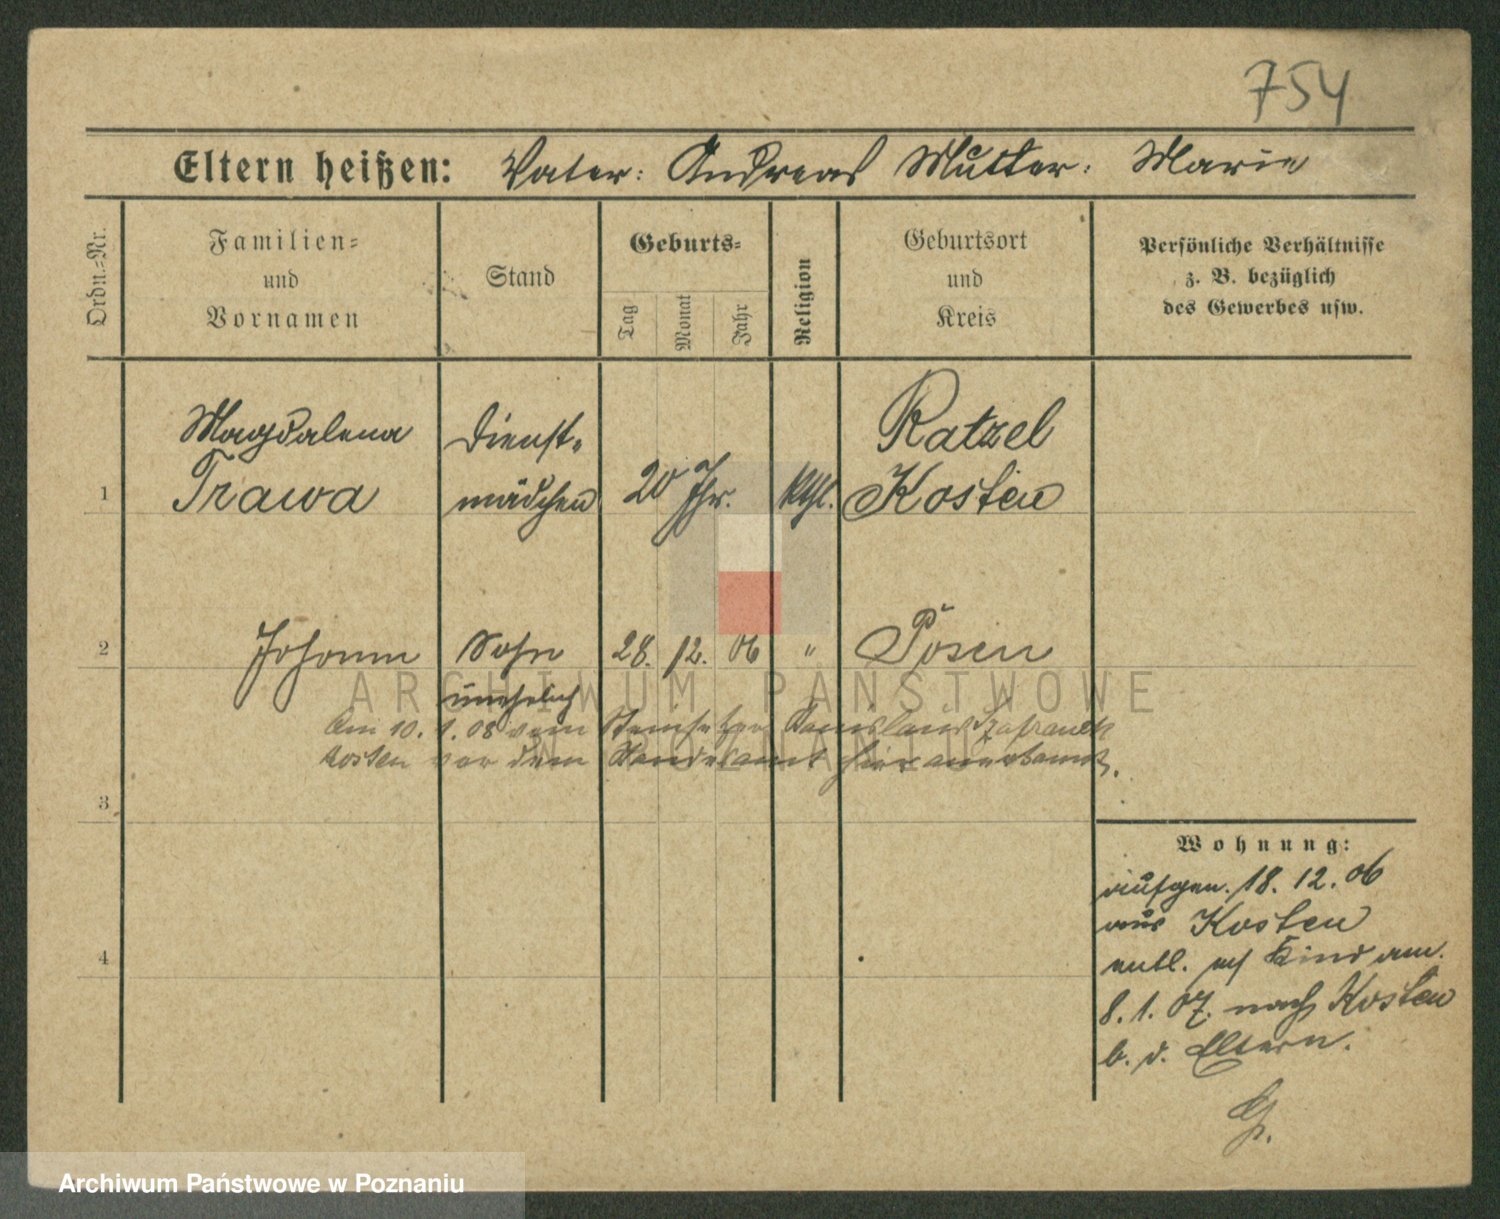 754
Eltern heißen: Vater: Andreas Mutter: Marie
Ordn.-Nr.
Familien-
und
Vornamen
Stand
Geburts-
Tag
Monat
Jahr
Religion
Geburtsort
und
Kreis
Persönliche Verhältnisse
z. B. bezüglich
des Gewerbes usw.
1
Magdalena
Trawa
Dienst-
mädchen
20 Jhr.
kthl.
Ratzel
Kosten
2
Johann
Sohn
unehelich
28. 12. 06
"
Posen
Am 10. 1. 08 vom Steinsetzer Stanislaus
Kosten vor dem Standesamt hier anerkannt.
3
4
Wohnung:
aufgen. 18. 12. 06
aus Kosten
entl. Kind am
8. 1. 07. nach Kosten
b. d. Eltern.
ARCHIWUM PAŃSTWOWE
W POZNANIU
Archiwum Państwowe w Poznaniu